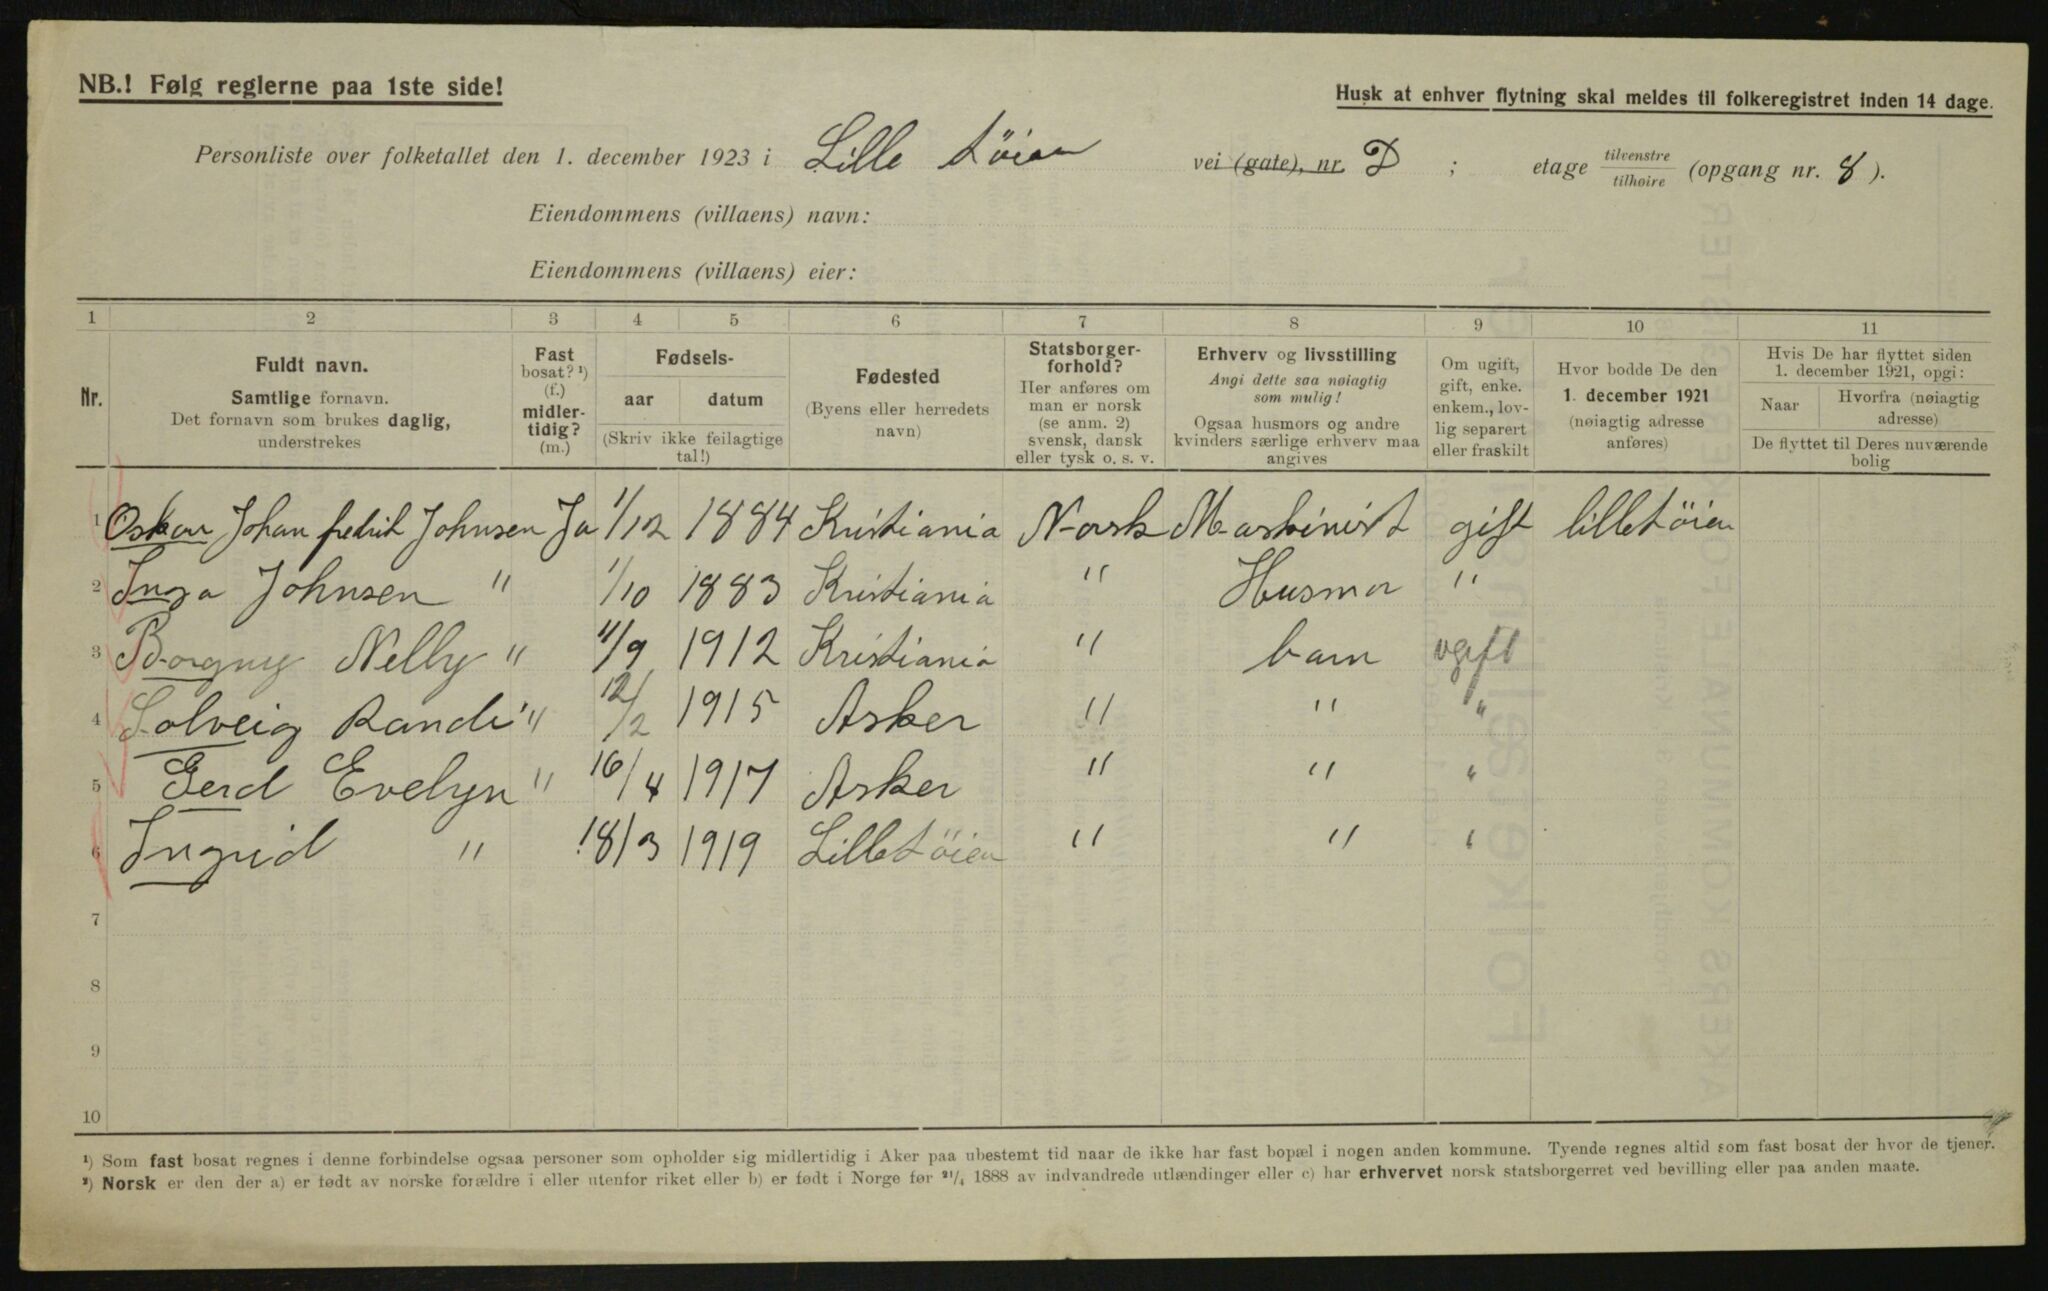 NB.! Følg reglerne paa 1ste side!
Husk at enhver flytning skal meldes til folkeregistret inden 14 dage.
Personliste over folketallet den 1. december 1923 i Lille töien vei (gate), nr. D ; etage tilvenstre tilhøire (opgang nr. 8).
Eiendommens (villaens) navn:
Eiendommens (villaens) eier:
1 2 3 4 5 6 7 8 9 10 11
Nr.
Fuldt navn.
Samtlige fornavn.
Det fornavn som brukes daglig,
understrekes
Fast
bosat? ¹)
(f.)
midler-
tidig?
(m.)
Fødsels-
aar datum
(Skriv ikke feilagtige
tal!)
Fødested
(Byens eller herredets
navn)
Statsborger-
forhold?
Her anføres om
man er norsk
(se anm. 2)
svensk, dansk
eller tysk o. s. v.
Erhverv og livsstilling
Angi dette saa nøiagtig
som mulig!
Ogsaa husmors og andre
kvinders særlige erhverv maa
angives
Om ugift,
gift, enke.
enkem., lov-
lig separert
eller fraskilt
Hvor bodde De den
1. december 1921
(nøiagtig adresse
anføres)
Hvis De har flyttet siden
1. december 1921, opgi:
Naar
Hvorfra (nøiagtig
adresse)
De flyttet til Deres nuværende
bolig
1 Oskar Johan fredrik Johnsen Ja 1/12 1884 Kristiania Norsk Maskinist gift lilletöien
2 Inga Johnsen " 1/10 1883 Kristiania " Husmor "
3 Borgny Nelly " 11/9 1912 Kristiania " barn ugift
4 Solveig Randi " 12/2 1915 Asker " " "
5 Gerd Evelyn " 16/4 1917 Asker " " "
6 Ingrid " 18/3 1919 Lilletöien " " "
7
8
9
10
¹) Som fast bosat regnes i denne forbindelse ogsaa personer som opholder sig midlertidig i Aker paa ubestemt tid naar de ikke har fast bopæl i nogen anden kommune. Tyende regnes altid som fast bosat der hvor de tjener.
²) Norsk er den der a) er født av norske forældre i eller utenfor riket eller b) er født i Norge før ²¹/₄ 1888 av indvandrede utlændinger eller c) har erhvervet norsk statsborgerret ved bevilling eller paa anden maate.